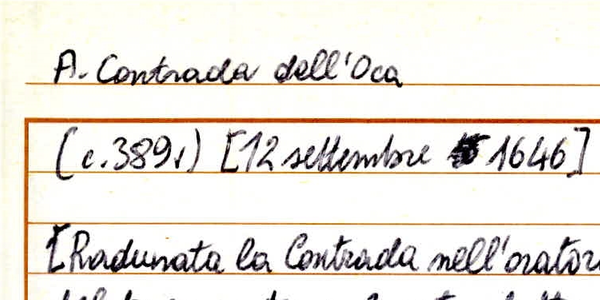 A. Contrada dell'Oca
(c.389v) [12 settembre 1646]
[Radunata la Contrada nell'orator